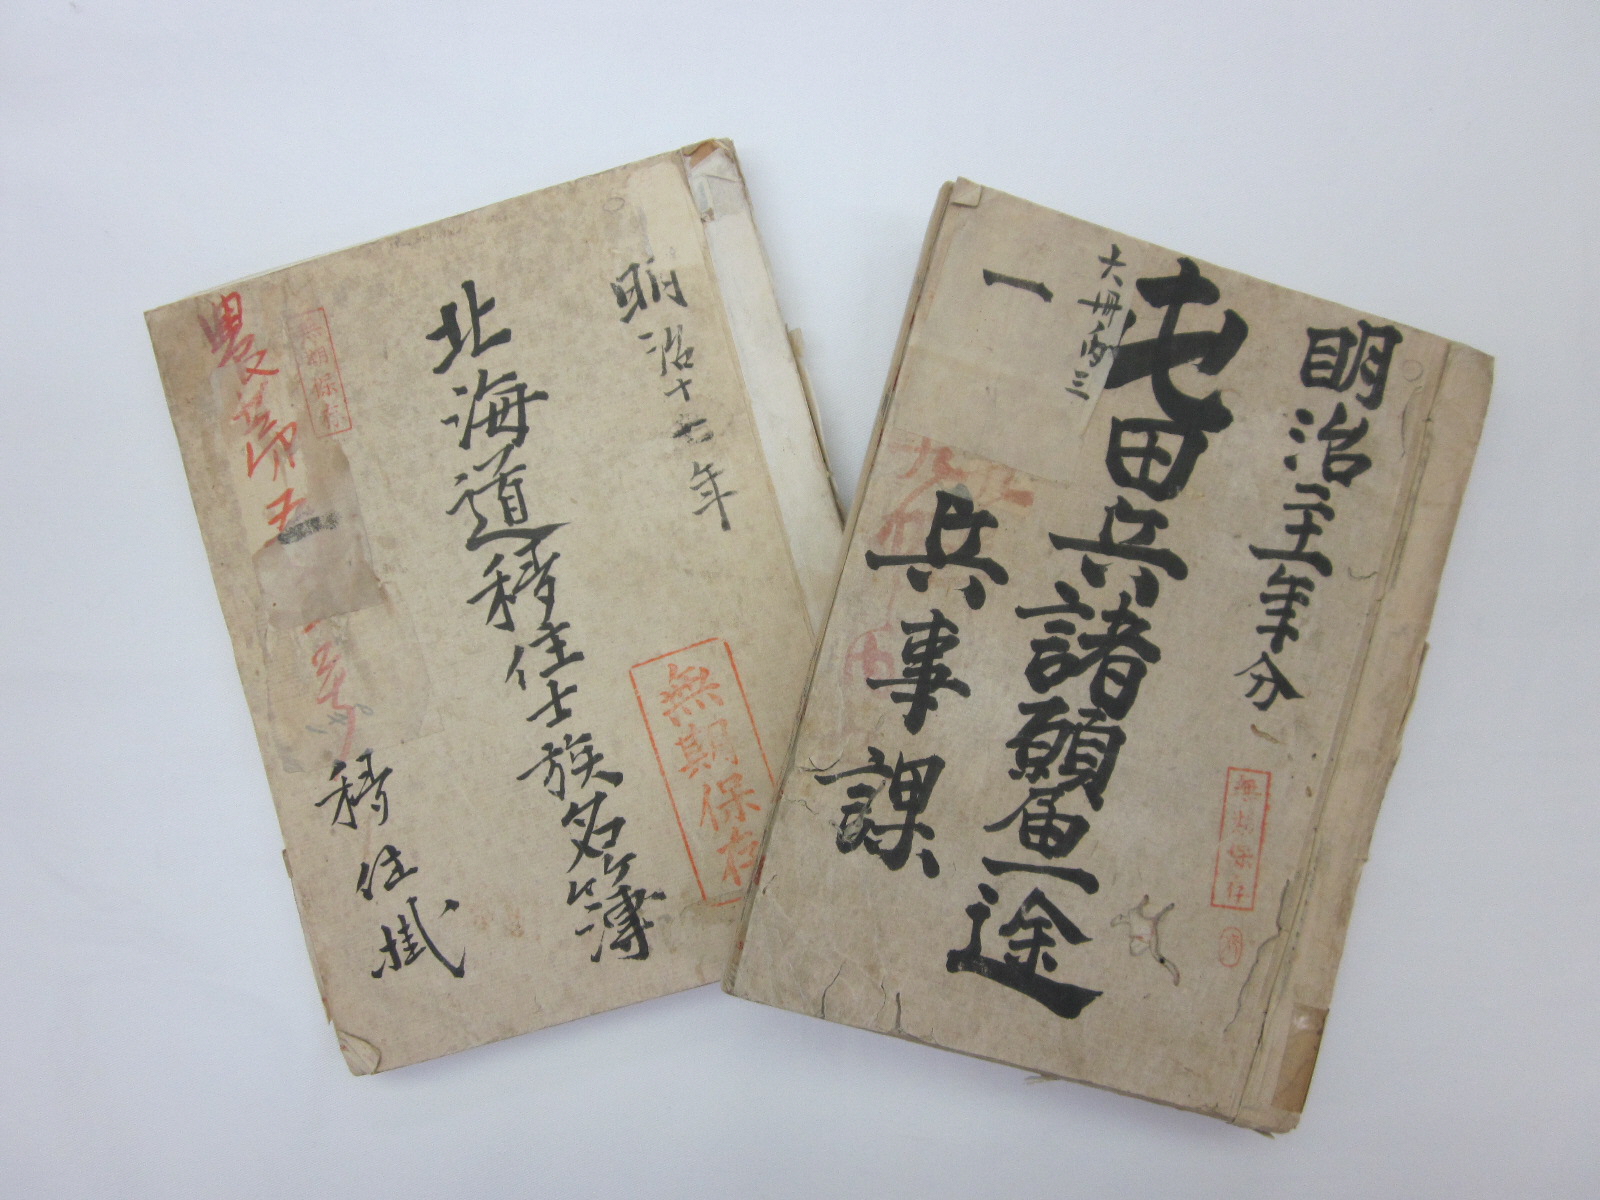 明治十七年
北海道移住士族名簿
移住掛
無期保存
無期保存
農第五
明治二十年分
屯田兵諸願届一途
大冊丙三
一
兵事課
無期保存